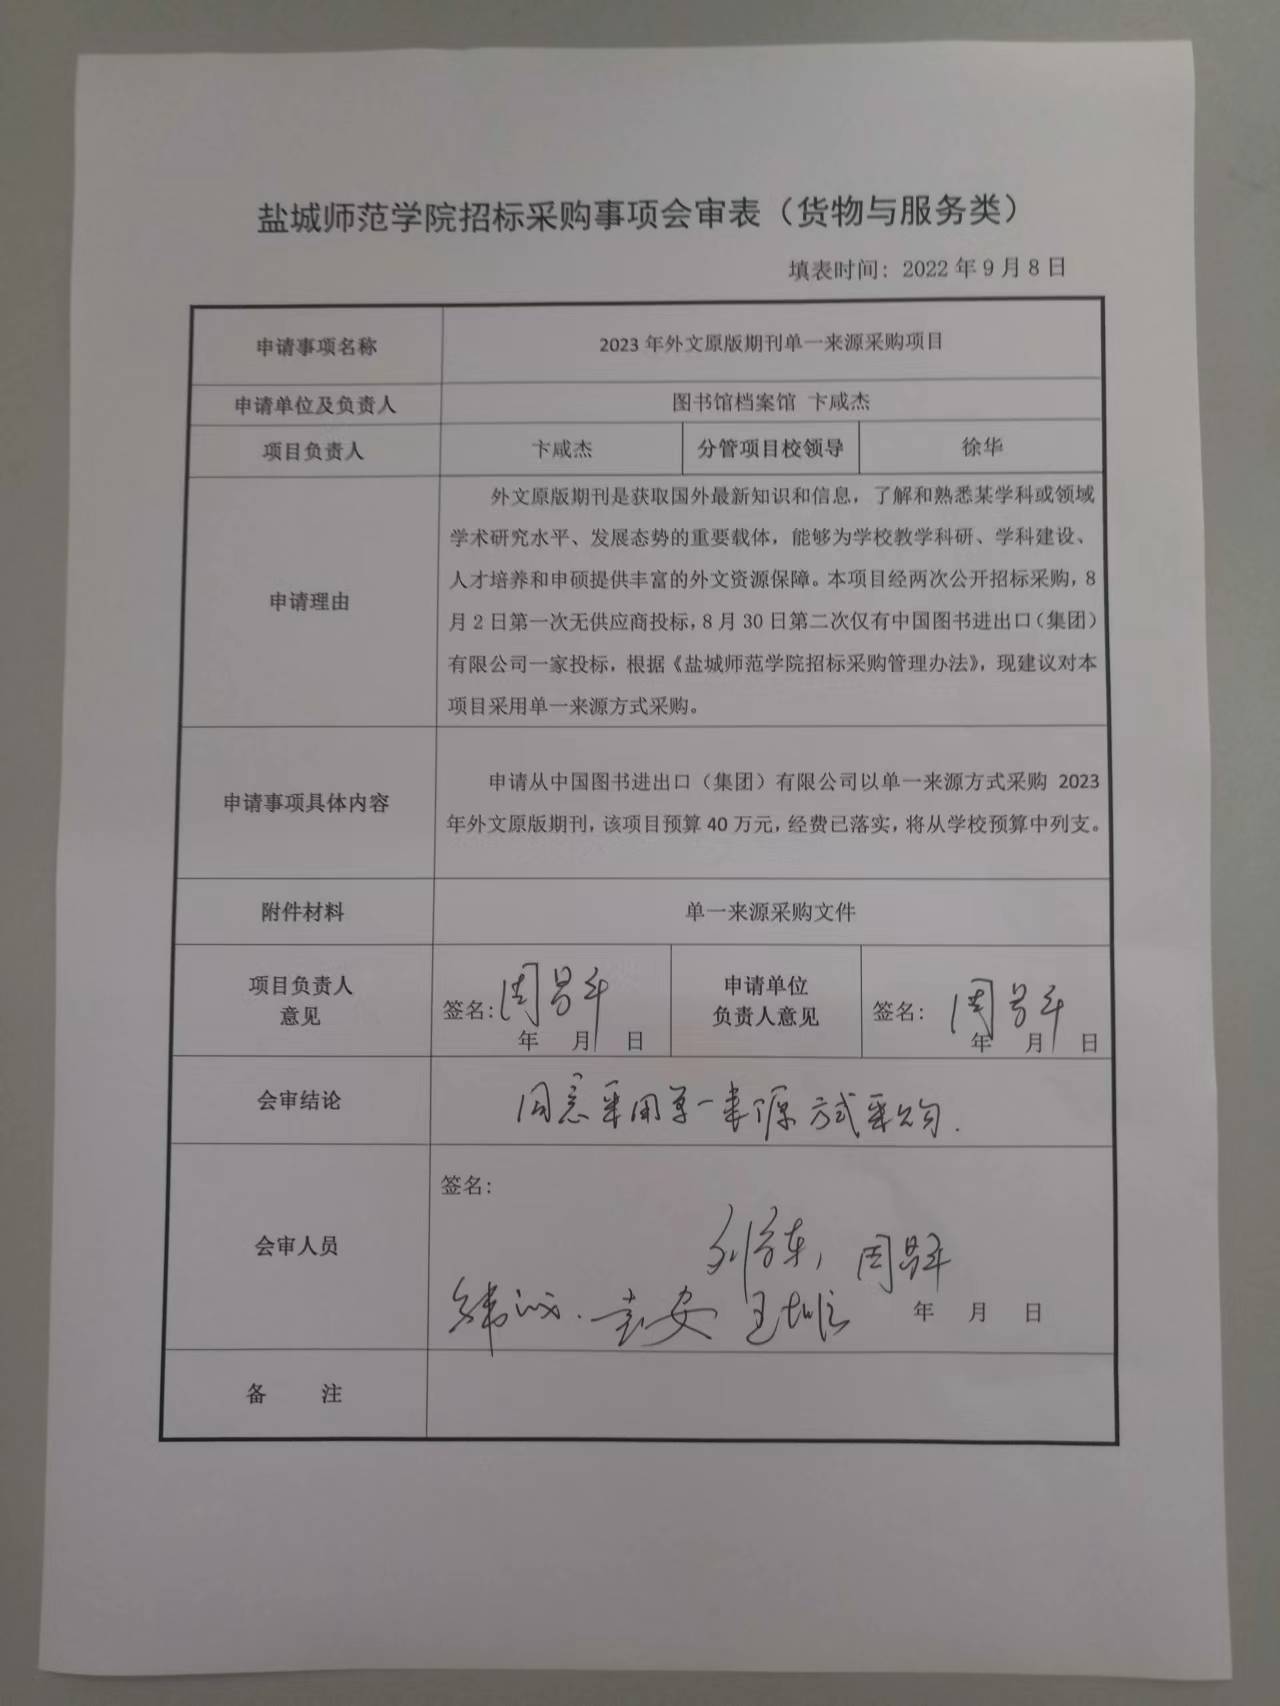 盐城师范学院招标采购事项会审表（货物与服务类）
填表时间：2022年9月8日
申请事项名称 2023年外文原版期刊单一来源采购项目
申请单位及负责人 图书馆档案馆 卞咸杰
项目负责人 卞咸杰 分管项目校领导 徐华
申请理由
外文原版期刊是获取国外最新知识和信息，了解和熟悉某学科或领域
学术研究水平、发展态势的重要载体，能够为学校教学科研、学科建设、
人才培养和申硕提供丰富的外文资源保障。本项目经两次公开招标采购，8
月2日第一次无供应商投标，8月30日第二次仅有中国图书进出口（集团）
有限公司一家投标，根据《盐城师范学院招标采购管理办法》，现建议对本
项目采用单一来源方式采购。
申请事项具体内容
申请从中国图书进出口（集团）有限公司以单一来源方式采购 2023
年外文原版期刊，该项目预算40万元，经费已落实，将从学校预算中列支。
附件材料 单一来源采购文件
项目负责人
意见
签名：周
年 月 日
申请单位
负责人意见
签名：周
年 月 日
会审结论 同意采用单一来源方式采购.
会审人员
签名：
周
年 月 日
备 注